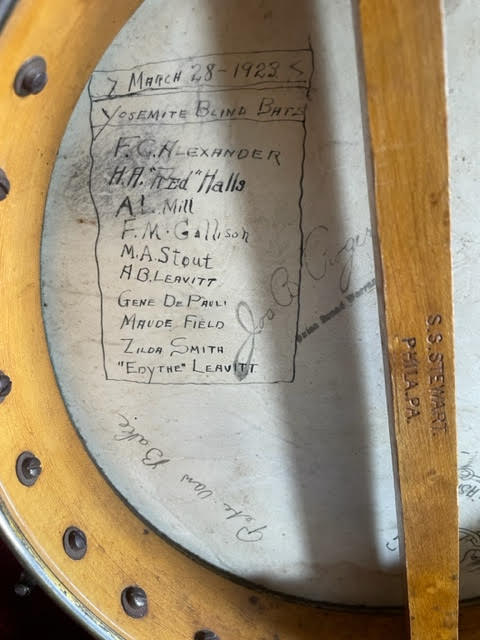 MARCH 28-1923
YOSEMITE BLIND BATS
F.G. ALEXANDER
H.A. "Red" Halls
A.L. Mill
F.M. Gallison
M.A. Stout
A.B. LEAVITT
GENE DE PAULI
MAUDE FIELD
ZILDA SMITH
"EDYTHE" LEAVITT
Jos B.
Pete Van Bake
S.S. STEWART.
PHILA. PA.